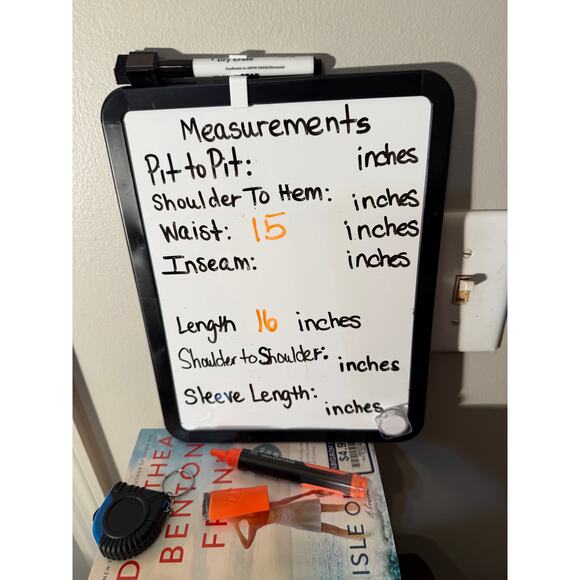 Dry Erase
Measurements
Pit to Pit: inches
Shoulder To Hem: inches
Waist: 15 inches
Inseam: inches
Length 16 inches
Shoulder to Shoulder: inches
Sleeve Length: inches
BARGAIN
$4.9
THEA
BENTON
FRANK
ISLE O